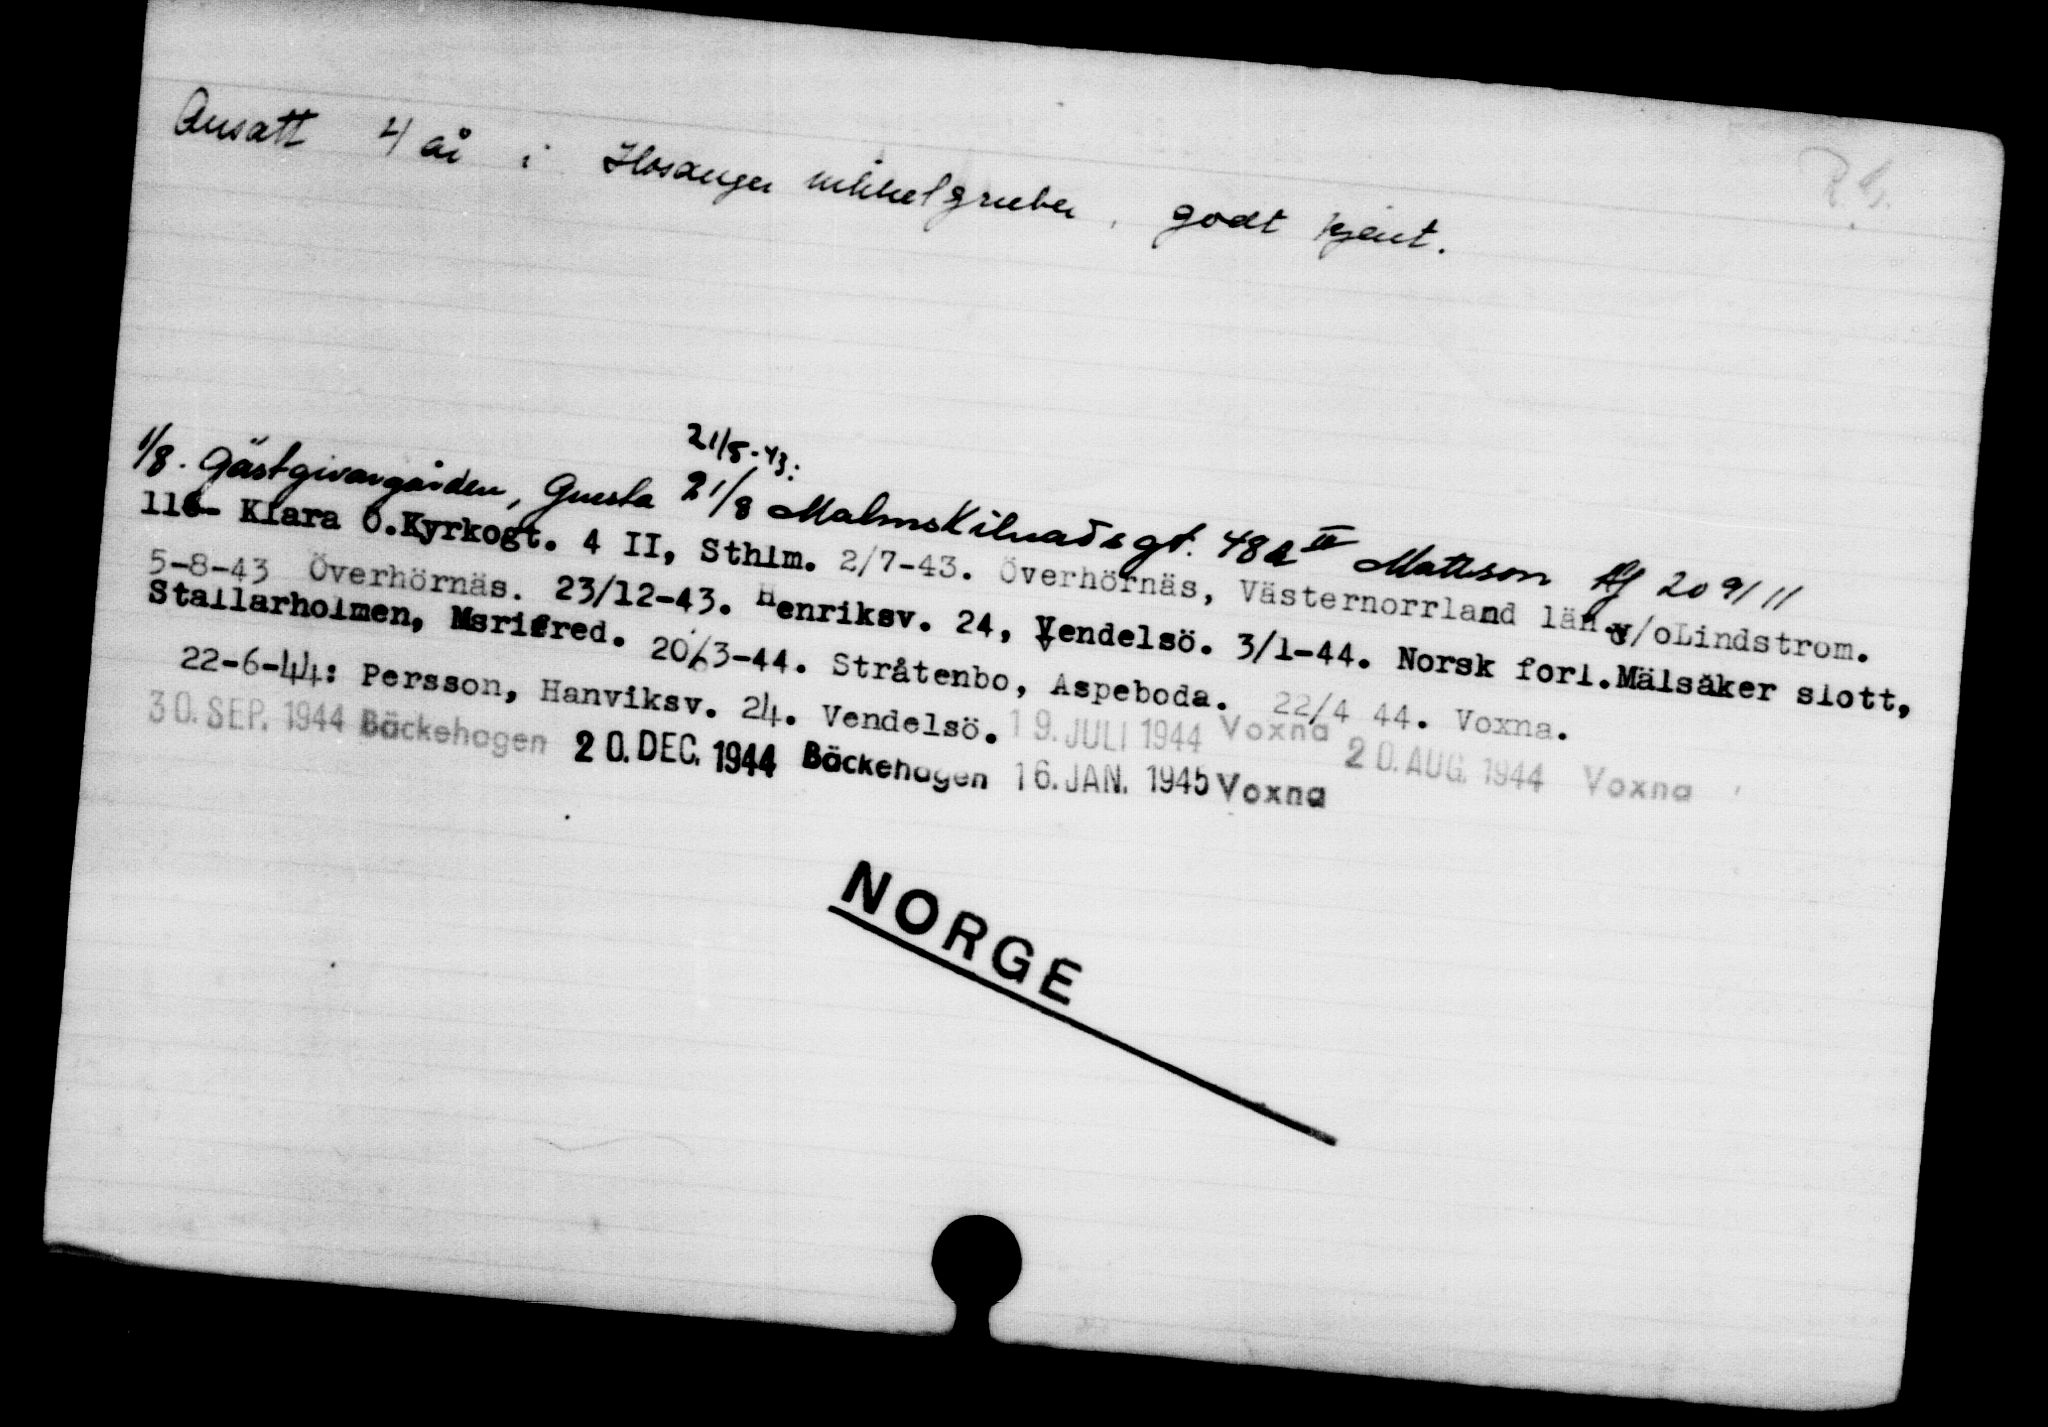 R.S.
Ansatt 4 år i Hosanger nikkelgruber, godt kjent.
21/8-43:
1/8. Gästgivargården, Gnesta 21/8 Malmskilnadsgt. 48A III Mattsson Af 20 91 11
116- Klara Ö.Kyrkogt. 4 II, Sthlm. 2/7-43. Överhörnäs, Västernorrland län. v/oLindstrom.
5-8-43 Överhörnäs. 23/12-43. Henriksv. 24, Vendelsö. 3/1-44. Norsk forl.Mälsåker slott,
Stallarholmen, Msrifred. 20/3-44. Stråtenbo, Aspeboda. 22/4 44. Voxna.
22-6-44: Persson, Hanviksv. 24. Vendelsö. 19.JULI 1944 Voxna 20.AUG. 1944 Voxna
30.SEP. 1944 Bäckehagen 20.DEC. 1944 Bäckehagen 16.JAN. 1945 Voxna
NORGE